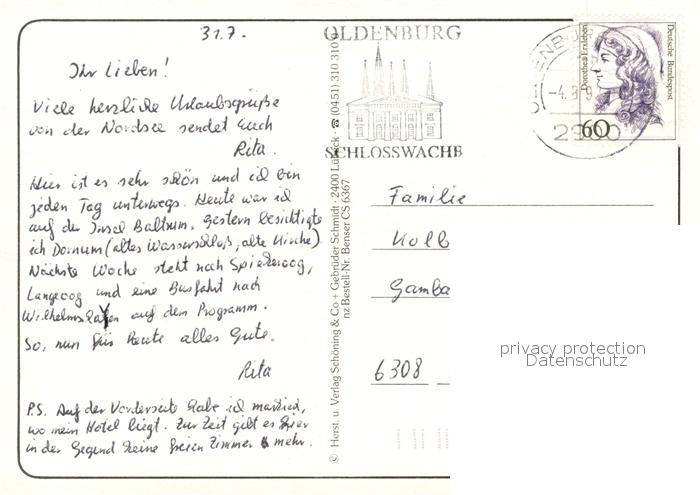 31.7.
Ihr Lieben!
Viele herzliche Urlaubsgrüße
von der Nordsee sendet Euch
Rita.
Hier ist es sehr schön und ich bin
jeden Tag unterwegs. Heute war ich
auf der Insel Baltrum, gestern besichtigte
ich Dornum (altes Wasserschloß, alte Kirche)
Nächste Woche steht noch Spiekeroog,
Langeoog und eine Busfahrt nach
Wilhelmshaven auf dem Programm.
So, nun für heute alles Gute.
Rita
P.S. Auf der Vorderseite habe ich markiert,
wo mein Hotel liegt. Zur Zeit gibt es hier
in der Gegend keine freien Zimmer mehr.
© Herst. u. Verlag Schöning & Co + Gebrüder Schmidt · 2400 Lübeck · ☎ (0451) 310 310
nz Bestell-Nr. Benser CS 6367
OLDENBURG
SCHLOSSWACHE
-4.8.9
2900
Dorothea Erxleben
Deutsche Bundespost
60
Familie
Kolb
Gamba
6308
privacy protection
Datenschutz